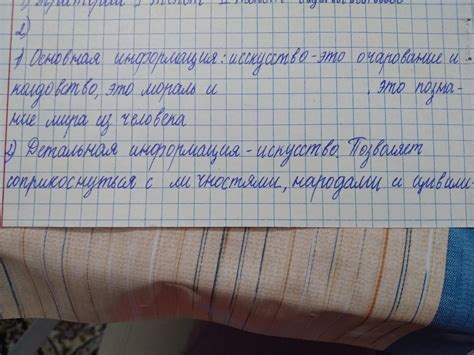 2)
1) Основная информация: исскуство-это очарование и
колдовство, это мораль и , это позна-
ние мира из человека
2) Детальная информация - искуство. Позволяет
соприкоснуться с личностями, народами и цивили-